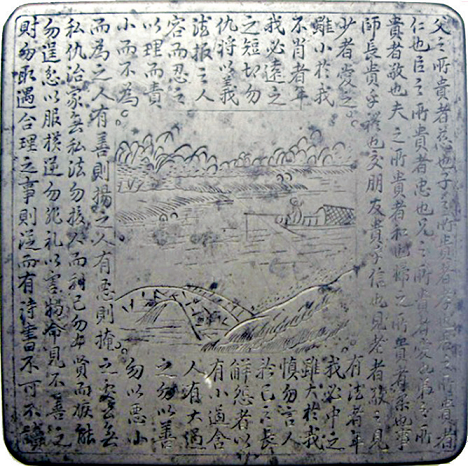 父之所貴者慈也子之所貴者孝也君之所貴者
仁也臣之所貴者忠也兄之所貴者愛也弟之所
貴者敬也夫之所貴者和也婦之所貴者柔也事
師長貴乎禮也交朋友貴乎信也見老者敬之見
少者愛之有法者年
雖小於我我必中之
不肖者年雖大於我
我必遠之慎勿言人
之短切勿於己之長
仇將以義解怨者以
法报之人有小過含
容而忍之人有大過
以理而責之勿以善
小而不為勿以惡小
而為之人有善則揚之人有惡則掩之處公無
私仇治家無私法勿損人而利己勿妒賢而嫉能
勿逞忽以服橫逆勿非礼以害物命見不善之
財勿取遇合理之事則從而有詩書不可不讀